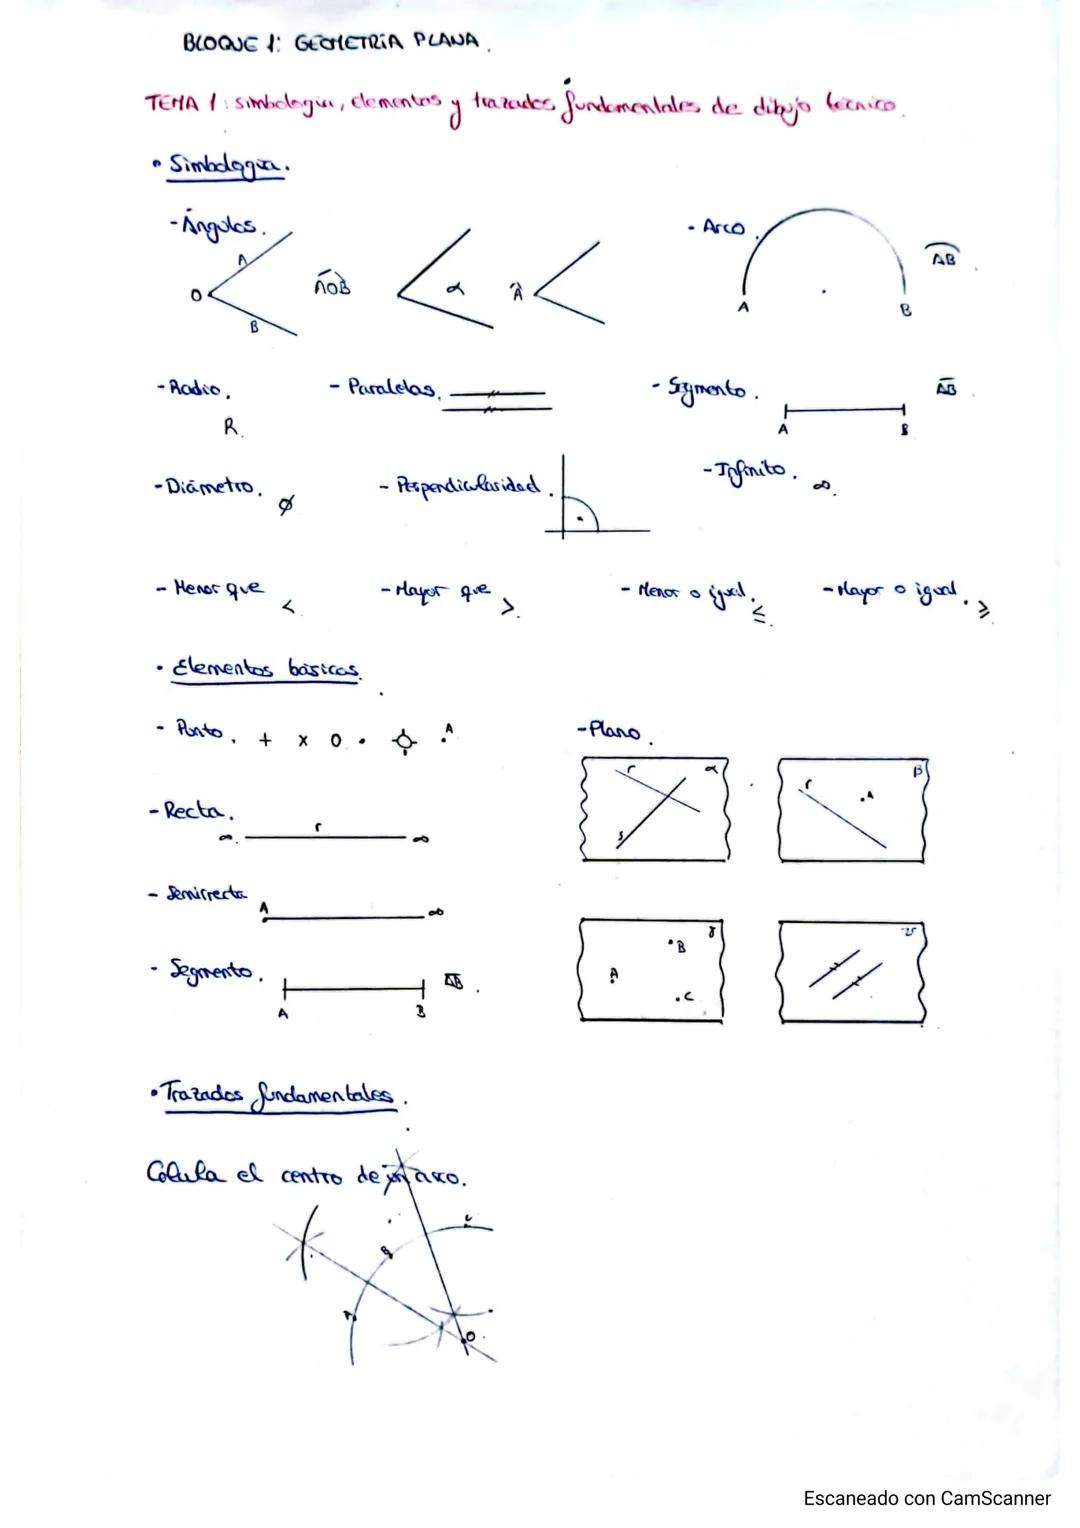 BLOQUE 1: GEOMETRÍA PLANA.
TEMA 1: simbología, elementos y trazados fundamentales de dibujo técnico.
• Simbología.
- Ángulos.
- Arco.
A
O
B
AOB
α
Â
A
B
AB
- Radio.
R.
- Paralelas.
- Segmento.
A
B
AB
- Diámetro. ø
- Perpendicularidad.
- Infinito. ∞.
- Menor que <
- Mayor que >.
- Menor o igual. ≤.
- Mayor o igual. ≥
• Elementos básicos.
- Punto. + x o . A
- Plano.
r
s
α
r
A
β
- Recta.
∞ r ∞
- Semirrecta
A ∞
- Segmento.
A
B
AB.
A
B
C
γ
• Trazados fundamentales.
Calcula el centro de un arco.
A
B
C
O
Escaneado con CamScanner